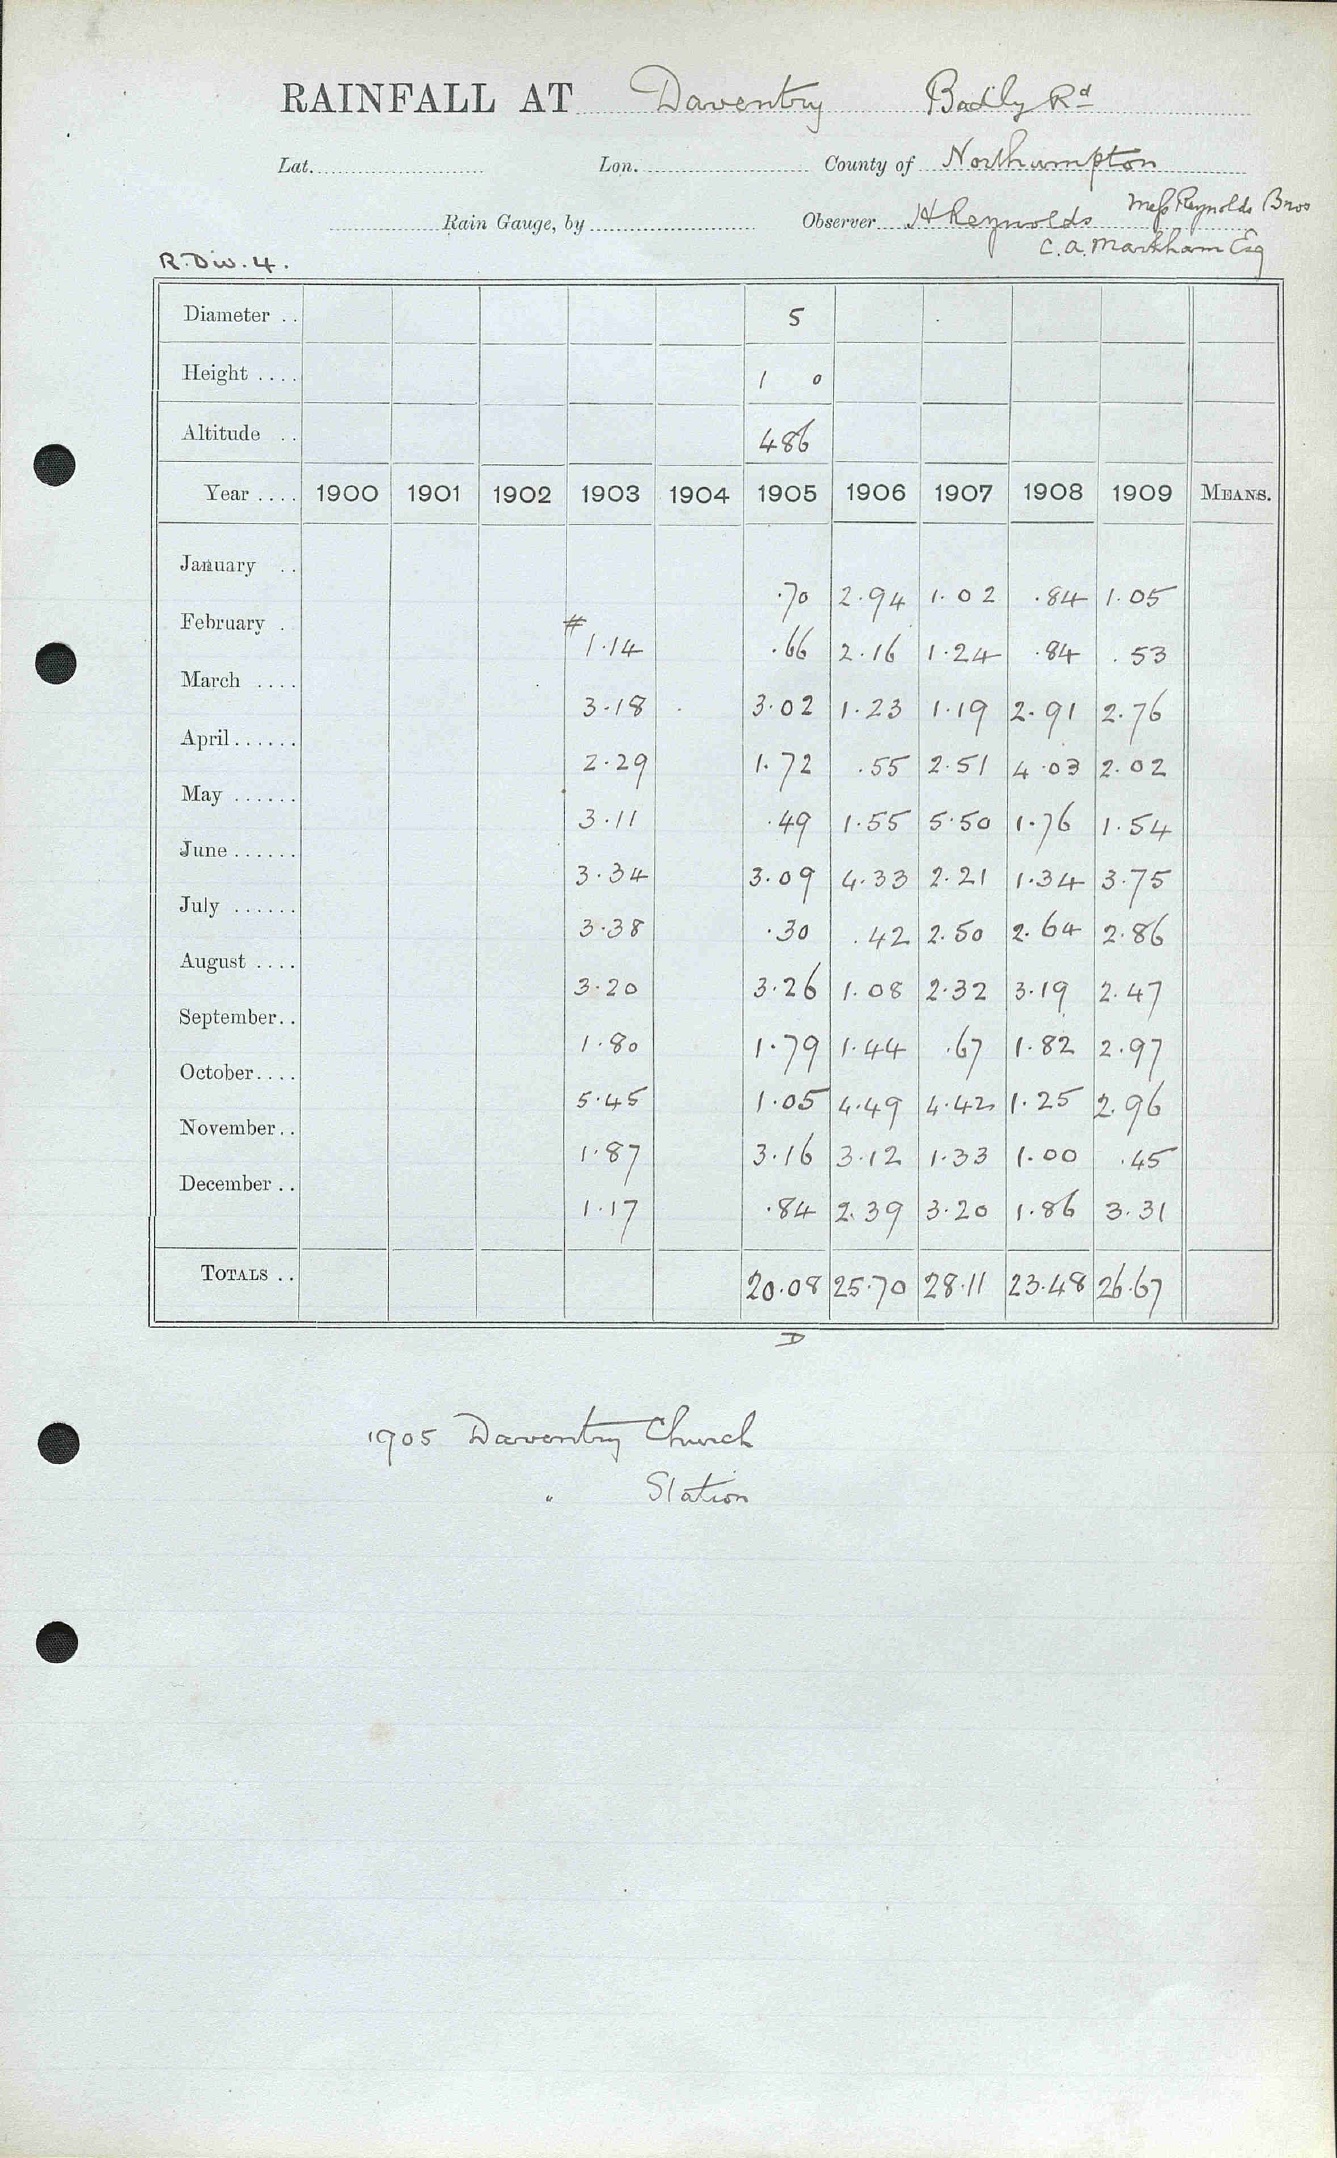 RAINFALL AT Daventry Badby Rd
Lat. Lon. County of Northampton
Rain Gauge, by Observer H Reynolds Mess Reynolds Bros
C.A. Markham Esq
R. Div. 4.
Diameter .. 5
Height .... 1 0
Altitude .. 486
Year .... 1900 1901 1902 1903 1904 1905 1906 1907 1908 1909 MEANS.
January .. .70 2.94 1.02 .84 1.05
February . # 1.14 .66 2.16 1.24 .84 .53
March .... 3.18 3.02 1.23 1.19 2.91 2.76
April...... 2.29 1.72 .55 2.51 4.03 2.02
May ...... 3.11 .49 1.55 5.50 1.76 1.54
June ...... 3.34 3.09 4.33 2.21 1.34 3.75
July ...... 3.38 .30 .42 2.50 2.64 2.86
August .... 3.20 3.26 1.08 2.32 3.19 2.47
September.. 1.80 1.79 1.44 .67 1.82 2.97
October.... 5.45 1.05 4.49 4.42 1.25 2.96
November.. 1.87 3.16 3.12 1.33 1.00 .45
December .. 1.17 .84 2.39 3.20 1.86 3.31
TOTALS .. 20.08 25.70 28.11 23.48 26.67
D
1905 Daventry Church
" Station